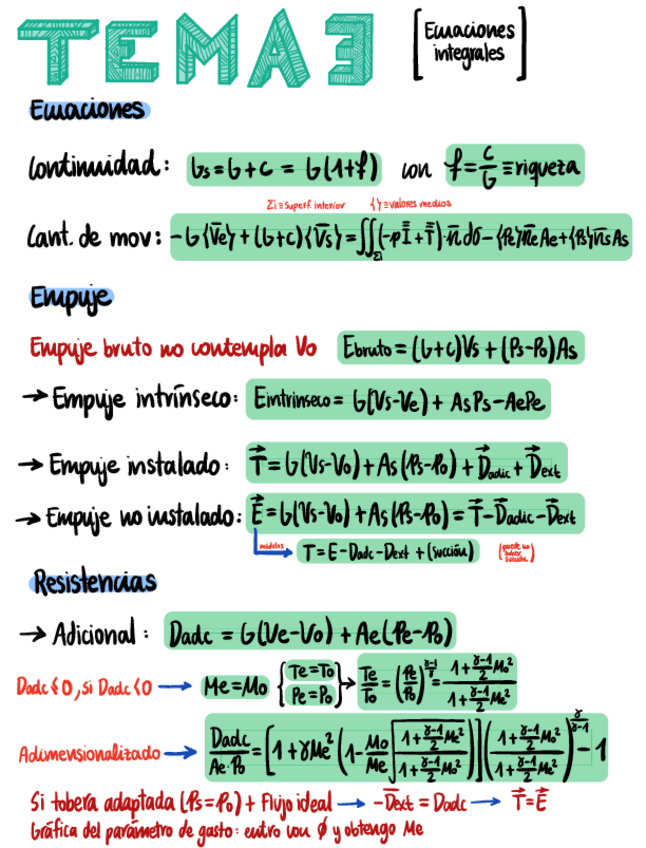 TEMA 3 [Ecuaciones integrales]
Ecuaciones
Continuidad: Gs = G + c = G(1+f) con f = c/G ≡ riqueza
Σi ≡ Superf. interior { } ≡ valores medios
Cant. de mov: -G{V̄e} + (G+c){V̄s} = ∬_Σi (-p Ī̄ + τ̄̄)·n̄ dσ - {Pe}n̄e Ae + {Ps}n̄s As
Empuje
Empuje bruto no contempla Vo Ebruto = (G+c)Vs + (Ps-Po)As
→ Empuje intrínseco: Eintrinseco = G(Vs-Ve) + AsPs - AePe
→ Empuje instalado: T⃗ = G(Vs-Vo) + As(Ps-Po) + D⃗adic + D⃗ext
→ Empuje no instalado: E⃗ = G(Vs-Vo) + As(Ps-Po) = T⃗ - D⃗adic - D⃗ext
módulos T = E - Dadc - Dext + (succión) (puede no haber succión)
Resistencias
→ Adicional: Dadc = G(Ve-Vo) + Ae(Pe-Po)
Dadc ≮ 0, si Dadc < 0 → Me = Mo { Te = To Pe = Po } → Te/To = (Pe/Po)^((γ-1)/γ) = (1 + (γ-1)/2 Mo²)/(1 + (γ-1)/2 Me²)
Adimensionalizado → Dadc/(Ae·Po) = [1 + γMe² (1 - Mo/Me √((1 + (γ-1)/2 Me²)/(1 + (γ-1)/2 Mo²)))] ((1 + (γ-1)/2 Mo²)/(1 + (γ-1)/2 Me²))^(γ/(γ-1)) - 1
Si tobera adaptada (Ps = Po) + Flujo ideal → -D̄ext = Dadc → T⃗ = E⃗
Gráfica del parámetro de gasto: entro con ø y obtengo Me